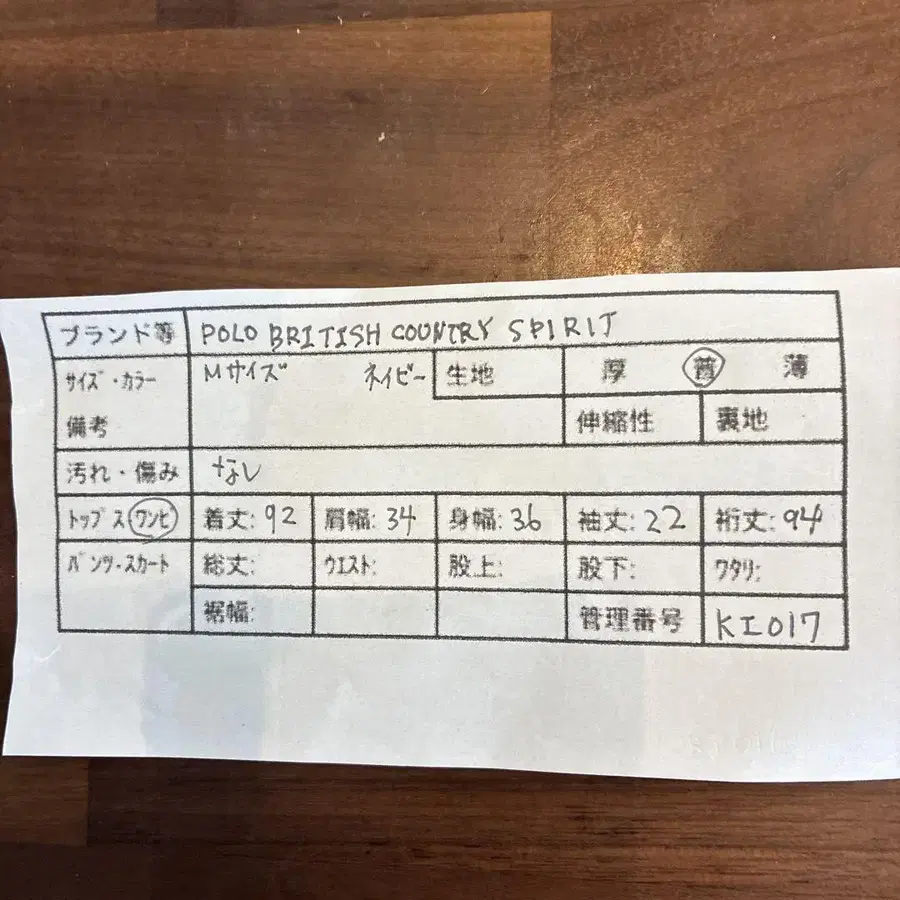 ブランド等 POLO BRITISH COUNTRY SPIRIT
サイズ・カラー Mサイズ ネイビー 生地 厚 普 薄
備考 伸縮性 裏地
汚れ・傷み なし
トップス ワンピ 着丈: 92 肩幅: 34 身幅: 36 袖丈: 22 裄丈: 94
パンツ・スカート 総丈: ウエスト: 股上: 股下: ワタリ:
裾幅: 管理番号 KI017